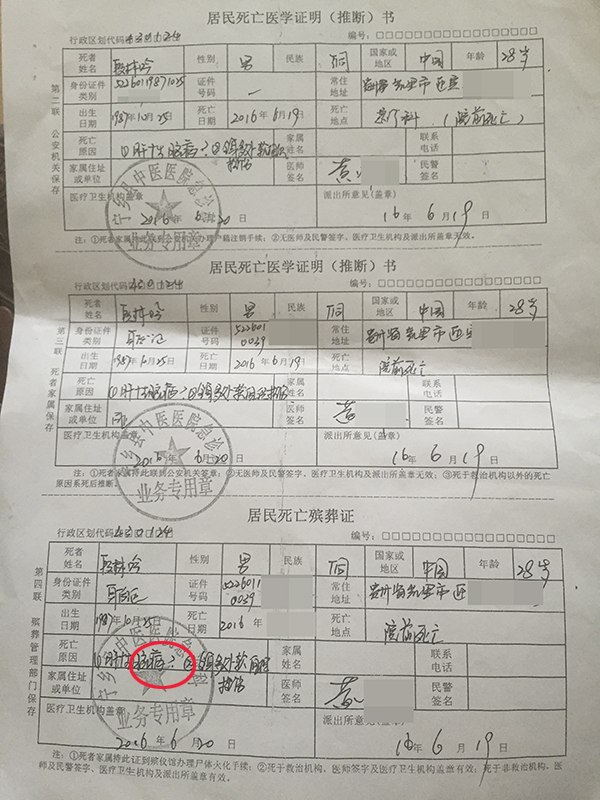 居民死亡医学证明（推断）书
行政区划代码430124 编号：□□□□□□□□□□□□□□□□□
第二联 公安机关保存
死者姓名 性别 男 民族 侗 国家或地区 中国 年龄 28岁
身份证件类别 5226019871025 证件号码 — 常住地址 贵州省凯里市
出生日期 1987年10月25日 死亡日期 2016年6月19 死亡地点 急诊科（院前死亡）
死亡原因 ①肝性脑病？②全身多处软组织挫伤 家属姓名 联系电话
家属住址或单位 医师签名 黄 民警签名
医疗卫生机构盖章 派出所意见（盖章）
宁乡县中医医院急诊
业务专用章
2016年6月20日 16年6月19日
注：①死者家属持此联向公安机关办理户籍注销手续；②无医师及民警签字、医疗卫生机构及派出所盖章无效。
居民死亡医学证明（推断）书
行政区划代码430124 编号：□□□□□□□□□□□□□□□□□
第三联 死者家属保存
死者姓名 性别 男 民族 侗 国家或地区 中国 年龄 28岁
身份证件类别 证件号码 522601 0039 常住地址 贵州省凯里市
出生日期 1987年10月25日 死亡日期 2016年6月19 死亡地点 院前死亡
死亡原因 ①肝性脑病？②全身多处软组织挫伤 家属姓名 联系电话
家属住址或单位 医师签名 黄 民警签名
医疗卫生机构盖章 派出所意见（盖章）
宁乡县中医医院急诊
业务专用章
2016年6月20日 16年6月19日
注：①死者家属持此联向公安机关签章；②无医师及民警签字、医疗卫生机构及派出所盖章无效；③死于救治机构以外的死亡
原因系死后推断。
居民死亡殡葬证
行政区划代码430124 编号：□□□□□□□□□□□□□□□□□
第四联 殡葬管理部门保存
死者姓名 性别 男 民族 侗 国家或地区 中国 年龄 28岁
身份证件类别 证件号码 5226011 0039 常住地址 贵州省凯里市
出生日期 1987年10月25日 死亡日期 2016年 死亡地点 院前死亡
死亡原因 ①肝性脑病？②全身多处软组织挫伤 家属姓名 联系电话
家属住址或单位 医师签名 黄 民警签名
医疗卫生机构盖章 派出所意见（盖章）
宁乡县中医医院急诊
业务专用章
2016年6月20日 16年6月19日
注：①死者家属持此证到殡仪馆办理尸体火化手续；②死于救治机构，医师签字及医疗卫生机构盖章有效；死于非救治机构，医
师及民警签字、医疗卫生机构及派出所盖章有效。